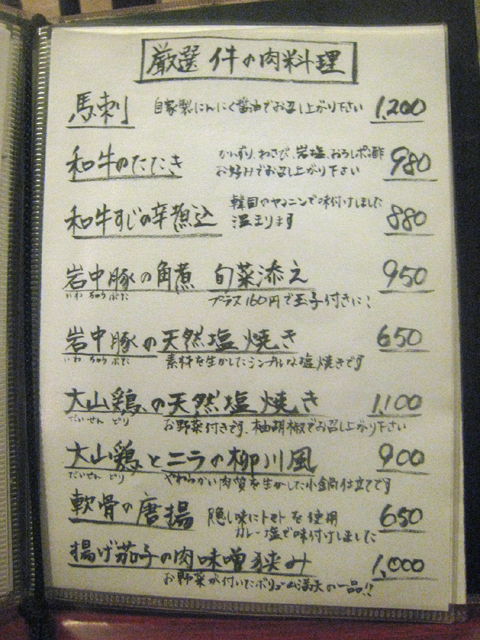 厳選 件の肉料理
馬刺 自家製にんにく醤油でお召し上がり下さい 1,200
和牛のたたき かんずり、わさび、岩塩、おろしポン酢 980
お好みでお召し上がり下さい
和牛すじの辛煮込 韓国のヤンニンで味付けしました 880
温まります
岩中豚の角煮 旬菜添え 950
いわ ちゅう ぶた プラス160円で玉子付きに!
岩中豚の天然塩焼き 650
いわ ちゅう ぶた 素材を生かしたシンプルな塩焼きです
大山鶏の天然塩焼き 1,100
だいせん どり お野菜付きです、柚胡椒でお召し上がり下さい
大山鶏とニラの柳川風 900
だいせん どり やわらかい肉質を生かした小鍋仕立てです
軟骨の唐揚 隠し味にトマトを使用 650
カレー塩で味付けしました
揚げ茄子の肉味噌挟み 1,000
お野菜が付いたボリューム満点の一品!!